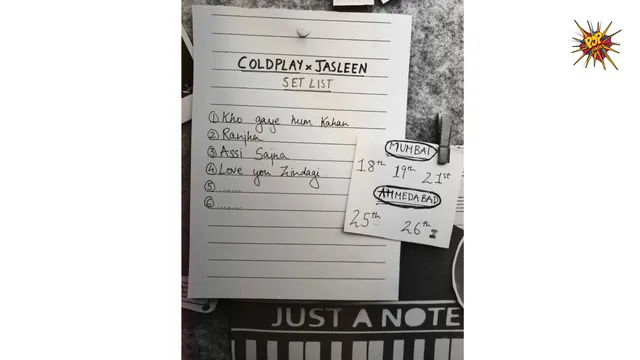 COLDPLAY x JASLEEN
SET LIST
① Kho gaye hum Kahan
② Ranjha
③ Assi Sajna
④ Love you Zindagi.
⑤ ........
⑥ ........
MUMBAI
18th 19th 21st
AHMEDABAD
25th 26th
JUST A NOTE
POP